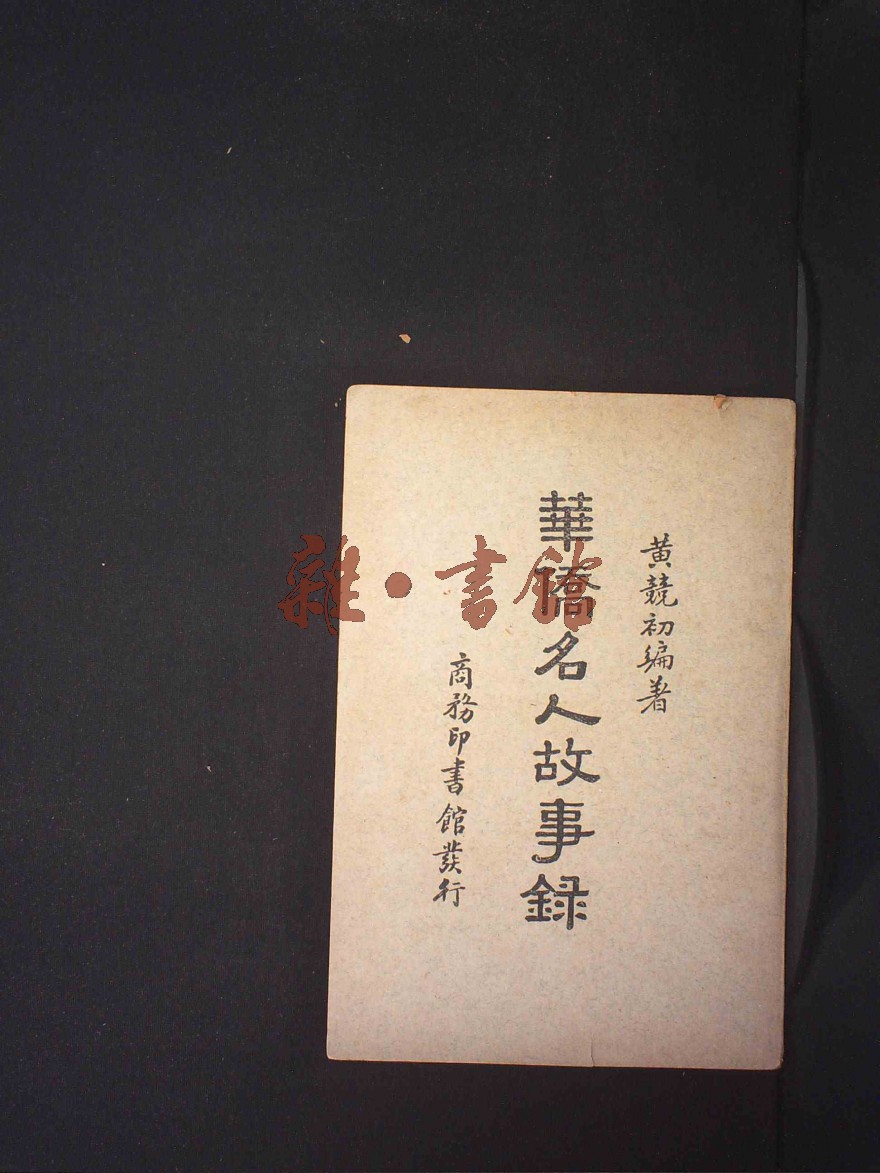 黄競初編著
華僑名人故事録
商務印書館發行
雜·書館